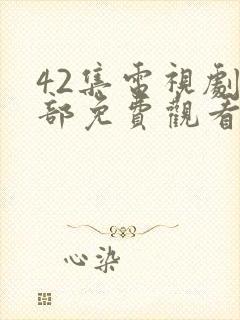 42集電視劇
部免費觀看
心染